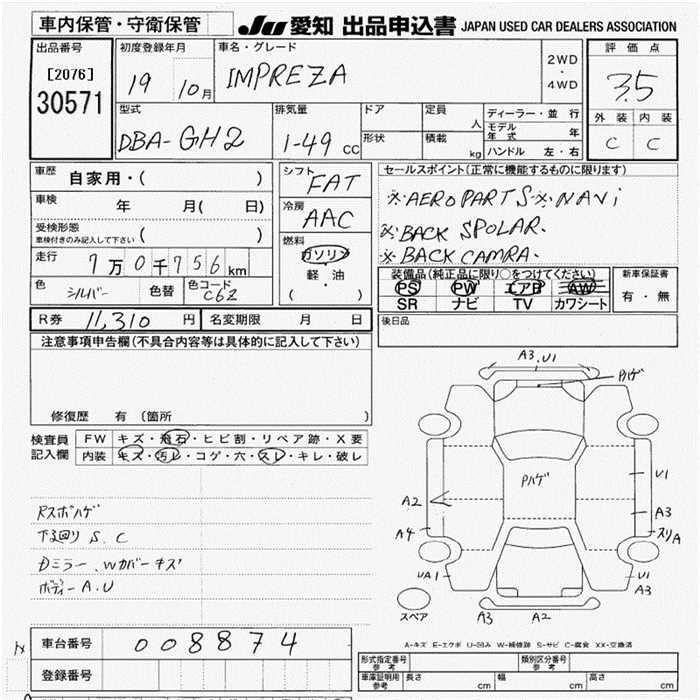 車内保管・守衛保管
JU 愛知 出品申込書 JAPAN USED CAR DEALERS ASSOCIATION
出品番号
[2076]
30571
初度登録年月
19 10月
車名・グレード
IMPREZA
2WD
・
4WD
評価点
3.5
外装 内装
C C
型式
DBA-GH2
排気量
1-49 CC
ドア
形状
定員
人
積載
kg
ディーラー・並行
モデル年式 年
ハンドル 左・右
車歴 自家用・( )
車検 年 月( 日)
受検形態
車検付きのみ記入して下さい ( )
走行 7万0千756km
色 シルバー 色替 色コード C62
シフト
FAT
冷房
AAC
燃料
ガソリン
軽・油
( ・ )
セールスポイント(正常に機能するものに限ります)
※AEROPARTS※NAVi
※BACK SPOLAR.
※BACK CAMRA.
装備品(純正品に限り○をつけてください)
PS PW エアB AW
SR ナビ TV カワシート
新車保証書
有・無
R券 11,310 円 名変期限 月 日
後日品
注意事項申告欄(不具合内容等は具体的に記入して下さい)
修復歴 有 (箇所 )
検査員
記入欄
FW キズ・飛石・ヒビ割・リペア跡・X要
内装 キズ・汚レ・コゲ・穴・スレ・キレ・破レ
Rスポハゲ
下廻り S.C
Dミラー.Wカバーキズ
ボディーA.U
A3.U1
Pハゲ
Pハゲ
U1
A2
A3
A4
スリA
UA1
U1
A3
スペア
A3
A2
A-キズ E-エクボ U-凹み W-補修跡 S-サビ C-腐食 XX-交換済
車台番号 008874
登録番号
形式指定番号
参考
類別区分番号
参考
車庫証明用
参考
長さ cm 幅 cm 高さ cm